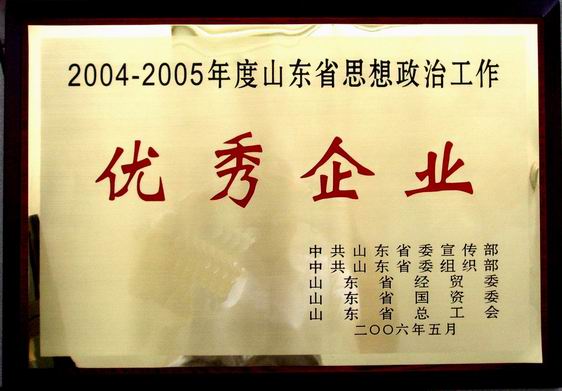 2004-2005年度山东省思想政治工作
优秀企业
中共山东省委宣传部
中共山东省委组织部
山东省经贸委
山东省国资委
山东省总工会
二〇〇六年五月